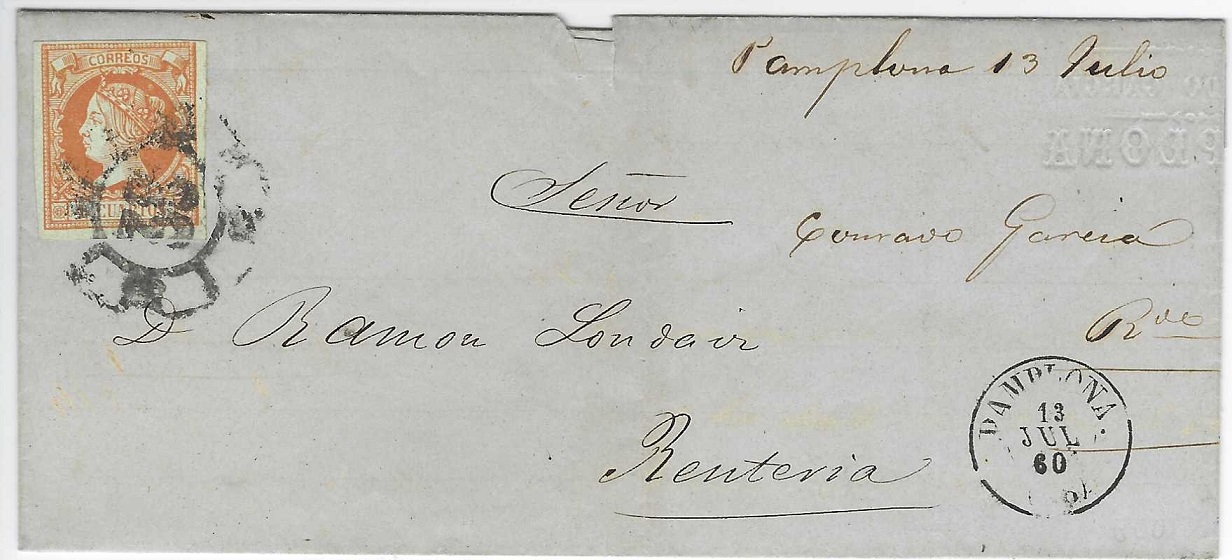 CORREOS
CUARTOS
Pamplona 13 Julio
PLONA
Señor
Conrado Garcia
D Ramon Londaiz
Rde
Renteria
PAMPLONA.
13
JUL
60